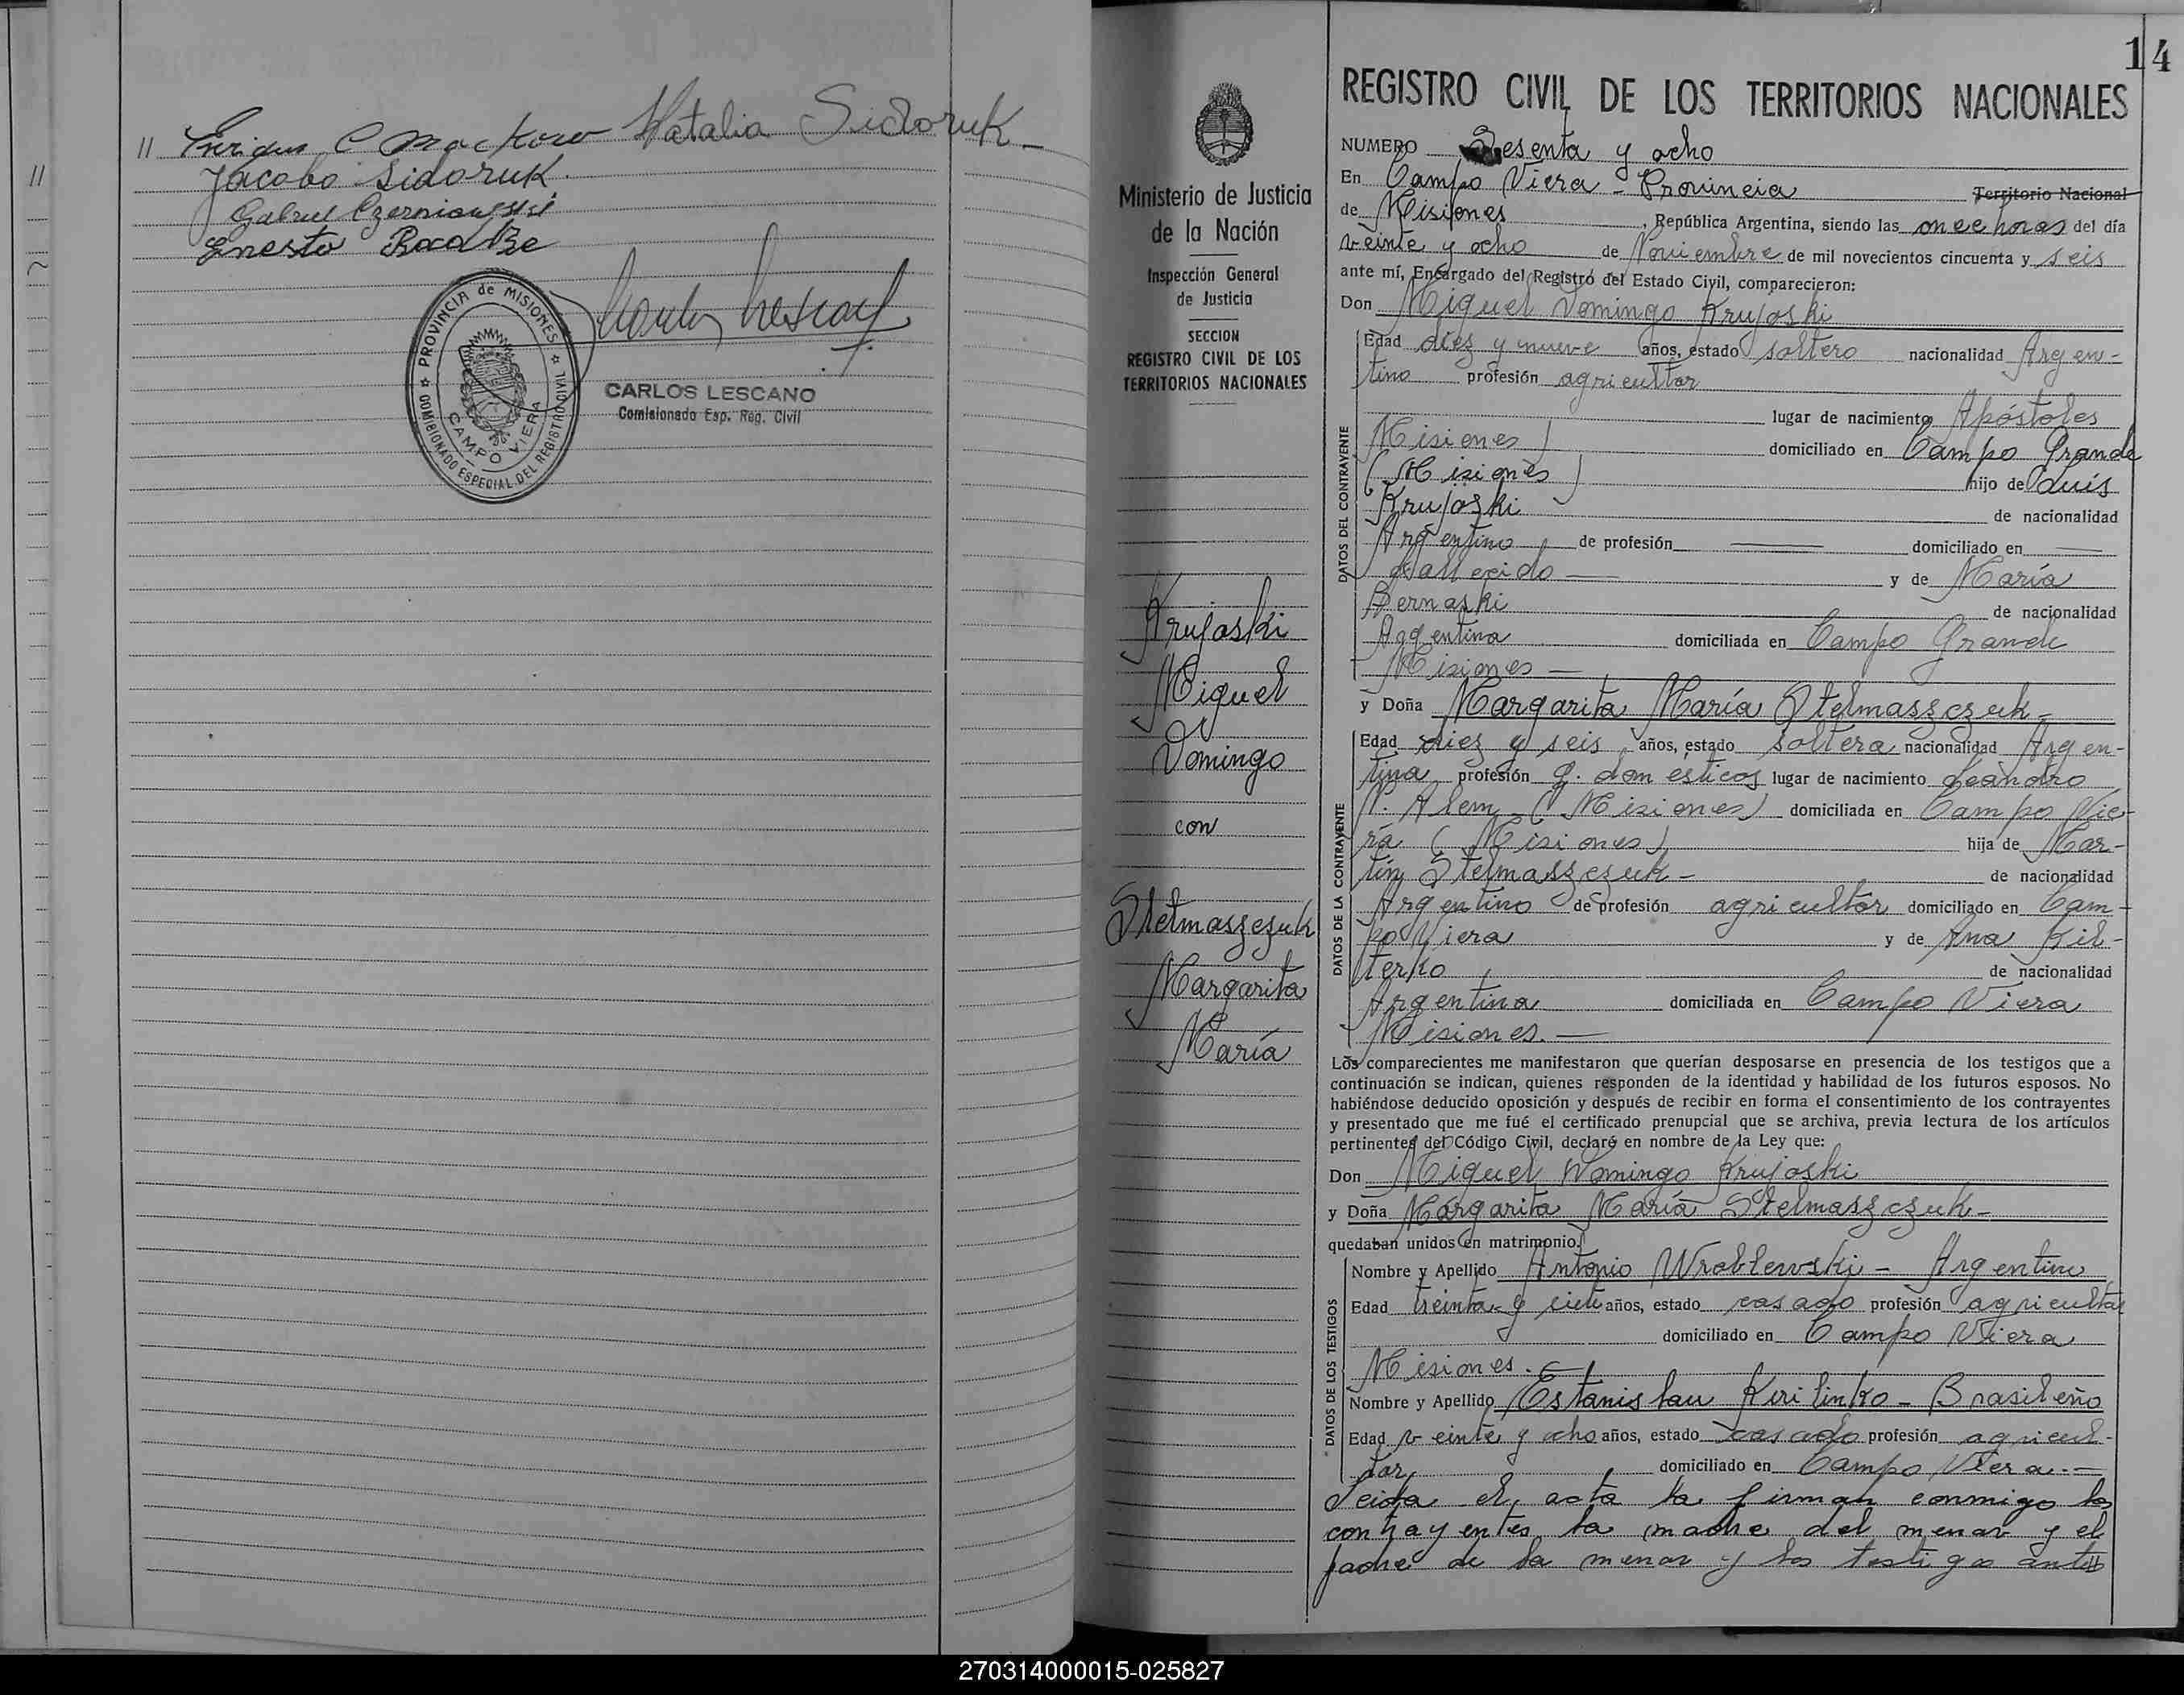 // Enrique C Mackow Natalia Sidoruk
//
Jacobo Sidoruk
Gabriel Czerniowski
Ernesto Roca Be
PROVINCIA de MISIONES
CAMPO VIERA
COMISIONADO ESPECIAL DEL REGISTRO CIVIL
CARLOS LESCANO
Comisionado Esp. Reg. Civil
14
Ministerio de Justicia
de la Nación
Inspección General
de Justicia
SECCION
REGISTRO CIVIL DE LOS
TERRITORIOS NACIONALES
Krujoski
Miguel
Domingo
con
Stelmaszczuk
Margarita
María
REGISTRO CIVIL DE LOS TERRITORIOS NACIONALES
NUMERO Sesenta y ocho
En Campo Viera - Provincia Territorio Nacional
de Misiones, República Argentina, siendo las once horas del día
veinte y ocho de Noviembre de mil novecientos cincuenta y seis
ante mí, Encargado del Registro del Estado Civil, comparecieron:
Don Miguel Domingo Krujoski
DATOS DEL CONTRAYENTE
Edad diez y nueve años, estado soltero nacionalidad Argen-
tino profesión agricultor
lugar de nacimiento Apóstoles
Misiones) domiciliado en Campo Grande
(Misiones) hijo de Luís
Krujoski de nacionalidad
Argentino de profesión —— domiciliado en ——
fallecido — y de María
Bernaski de nacionalidad
Argentina domiciliada en Campo Grande
Misiones —
y Doña Margarita María Stelmaszczuk -
DATOS DE LA CONTRAYENTE
Edad diez y seis años, estado soltera nacionalidad Argen-
tina profesión q. domésticos lugar de nacimiento Leandro
N. Alem (Misiones) domiciliada en Campo Vie-
ra (Misiones) hija de Mar-
tín Stelmaszczuk - de nacionalidad
Argentino de profesión agricultor domiciliado en Cam-
po Viera y de Ana Kil-
terko de nacionalidad
Argentina domiciliada en Campo Viera
Misiones. —
Los comparecientes me manifestaron que querían desposarse en presencia de los testigos que a
continuación se indican, quienes responden de la identidad y habilidad de los futuros esposos. No
habiéndose deducido oposición y después de recibir en forma el consentimiento de los contrayentes
y presentado que me fué el certificado prenupcial que se archiva, previa lectura de los artículos
pertinentes del Código Civil, declaré en nombre de la Ley que:
Don Miguel Domingo Krujoski
y Doña Margarita María Stelmaszczuk -
quedaban unidos en matrimonio.
DATOS DE LOS TESTIGOS
Nombre y Apellido Antonio Wroblewski - Argentino
Edad treinta y siete años, estado casado profesión agricultor
domiciliado en Campo Viera
Misiones. —
Nombre y Apellido Estanislau Kirilinko - Brasileño
Edad veinte y ocho años, estado casado profesión agricul-
tor domiciliado en Campo Viera. —
Leida el acta la firman conmigo los
contrayentes, la madre del menor y el
padre de la menor y los testigos antes //
270314000015-025827